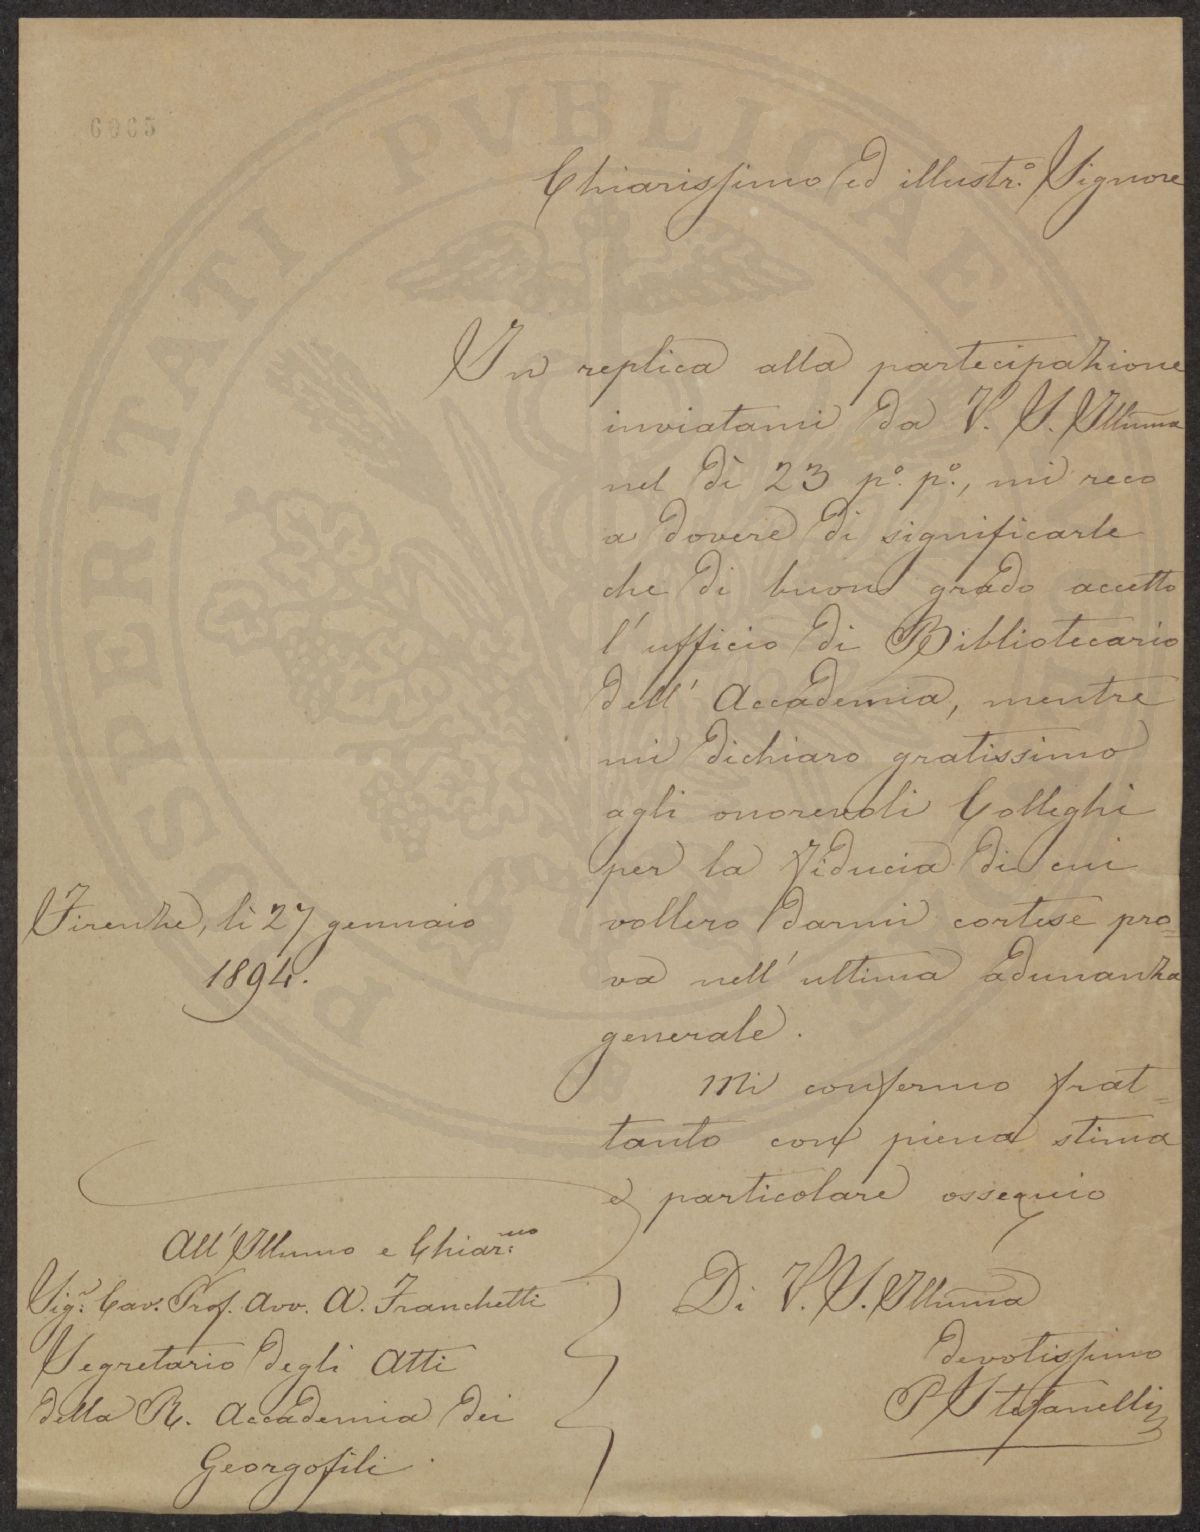 6065
PROSPERITATI PVBLICAE
Chiarissimo ed illustr.º Signore
In replica alla partecipazione
inviatami da V. S. Illma
nel dì 23 pº. pº., mi reco
a dovere di significarle
che di buon grado accetto
l'ufficio di Bibliotecario
dell' Accademia, mentre
mi dichiaro gratissimo
agli onorevoli Colleghi
per la fiducia di cui
vollero darmi cortese pro=
va nell' ultima adunanza
generale.
Mi confermo frat=
tanto con piena stima
e particolare ossequio
Di V. S. Illma
devotissimo
P Stefanelli
Firenze, lì 27 gennaio
1894.
All' Illmo e Chiar.mo
Sigr. Cav. Prof. Avv. A. Franchetti
Segretario degli Atti
della R. Accademia dei
Georgofili.